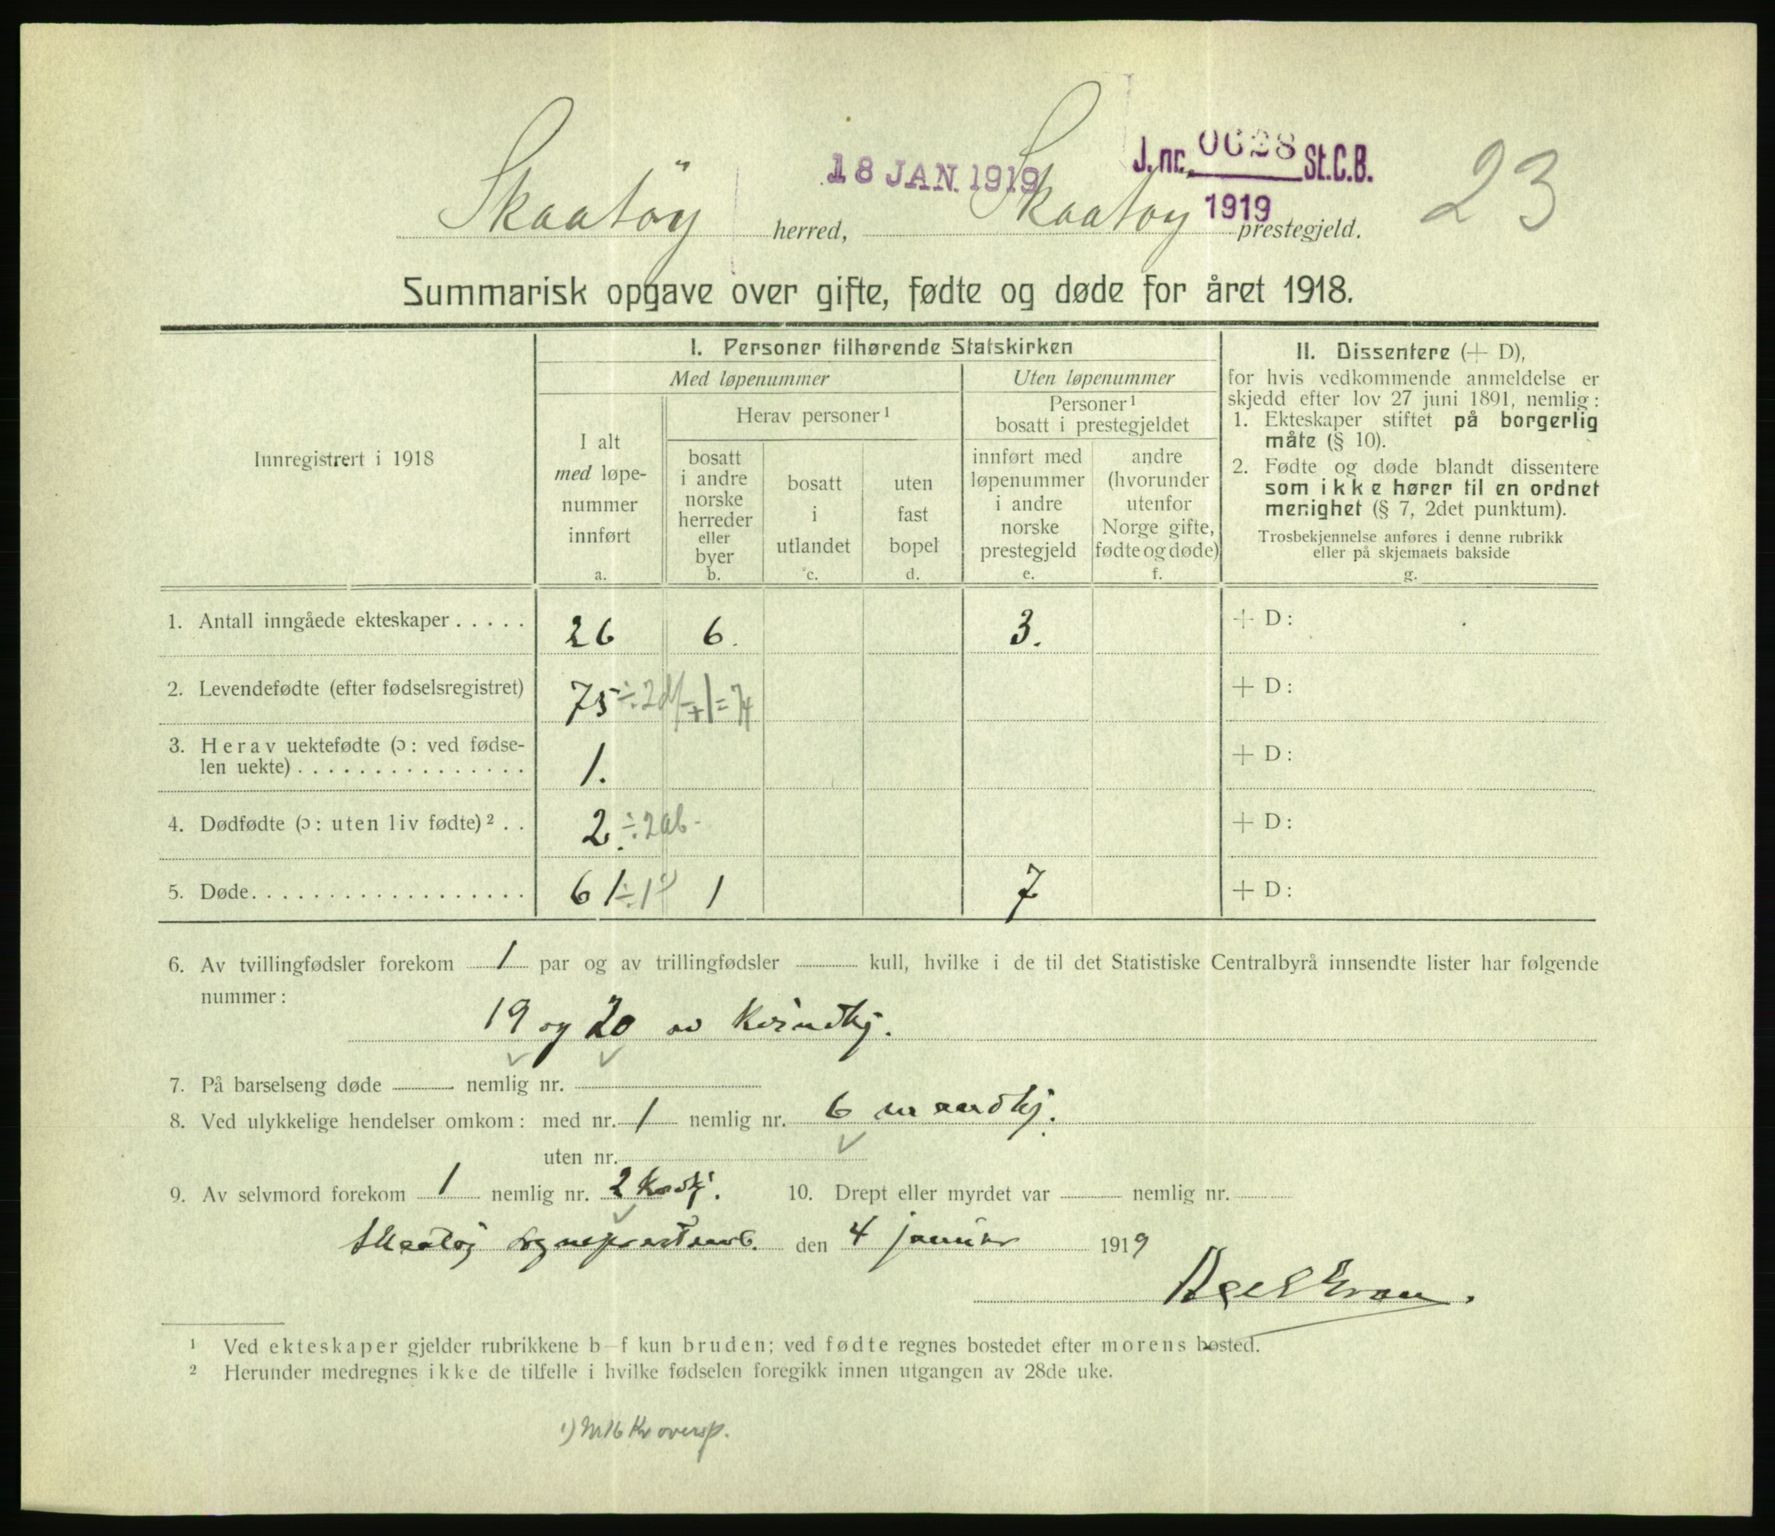 18 JAN. 1919
J. nr. 0628 St.C.B.
1919
23
Skaatöy herred, Skaatoy prestegjeld.
Summarisk opgave over gifte, fødte og døde for året 1918.
Innregistrert i 1918
I. Personer tilhørende Statskirken
Med løpenummer
Uten løpenummer
I alt
med løpe-
nummer
innført
a.
Herav personer¹
bosatt
i andre
norske
herreder
eller
byer
b.
bosatt
i
utlandet
c.
uten
fast
bopel
d.
Personer¹
bosatt i prestegjeldet
innført med
løpenummer
i andre
norske
prestegjeld
e.
andre
(hvorunder
utenfor
Norge gifte,
fødte og døde)
f.
II. Dissentere (+ D),
for hvis vedkommende anmeldelse er
skjedd efter lov 27 juni 1891, nemlig:
1. Ekteskaper stiftet på borgerlig
måte (§ 10).
2. Fødte og døde blandt dissentere
som ikke hører til en ordnet
menighet (§ 7, 2det punktum).
Trosbekjennelse anføres i denne rubrikk
eller på skjemaets bakside
g.
1. Antall inngåede ekteskaper . . . . . 26 6. 3. + D:
2. Levendefødte (efter fødselsregistret) 75 ÷ 2 + 1 = 74 + D:
3. Herav uektefødte (ɔ: ved fødse-
len uekte) . . . . . . . . . . . . . . . 1. + D:
4. Dødfødte (ɔ: uten liv fødte)² . . 2. ÷ 2 ab. + D:
5. Døde. . . . . . . . . . . . . . . . . . 61 ÷ 1 1 7 + D:
6. Av tvillingfødsler forekom 1 par og av trillingfødsler kull, hvilke i de til det Statistiske Centralbyrå innsendte lister har følgende
nummer:
19 og 20 av Kvindkj.
7. På barselseng døde nemlig nr.
8. Ved ulykkelige hendelser omkom: med nr. 1 nemlig nr. 6 mandkj.
uten nr.
9. Av selvmord forekom 1 nemlig nr. 2 Kvdkj. 10. Drept eller myrdet var nemlig nr.
Skaatøj sogneprestemb. den 4 januar 1919
Axel
¹ Ved ekteskaper gjelder rubrikkene b—f kun bruden; ved fødte regnes bostedet efter morens bosted.
² Herunder medregnes ikke de tilfelle i hvilke fødselen foregikk innen utgangen av 28de uke.
1) Nr 16 Kv oversp.